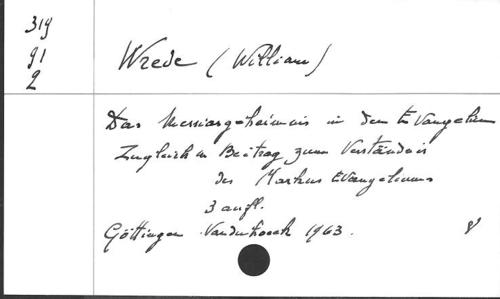 319
91
2
Wrede (William)
Das Messiasgeheimnis in den Evangelien
Zugleich en Beitrag zum Verständnis
des Markus Evangeliums
3 aufl.
Göttingen. Vandenhoeck 1963. 8